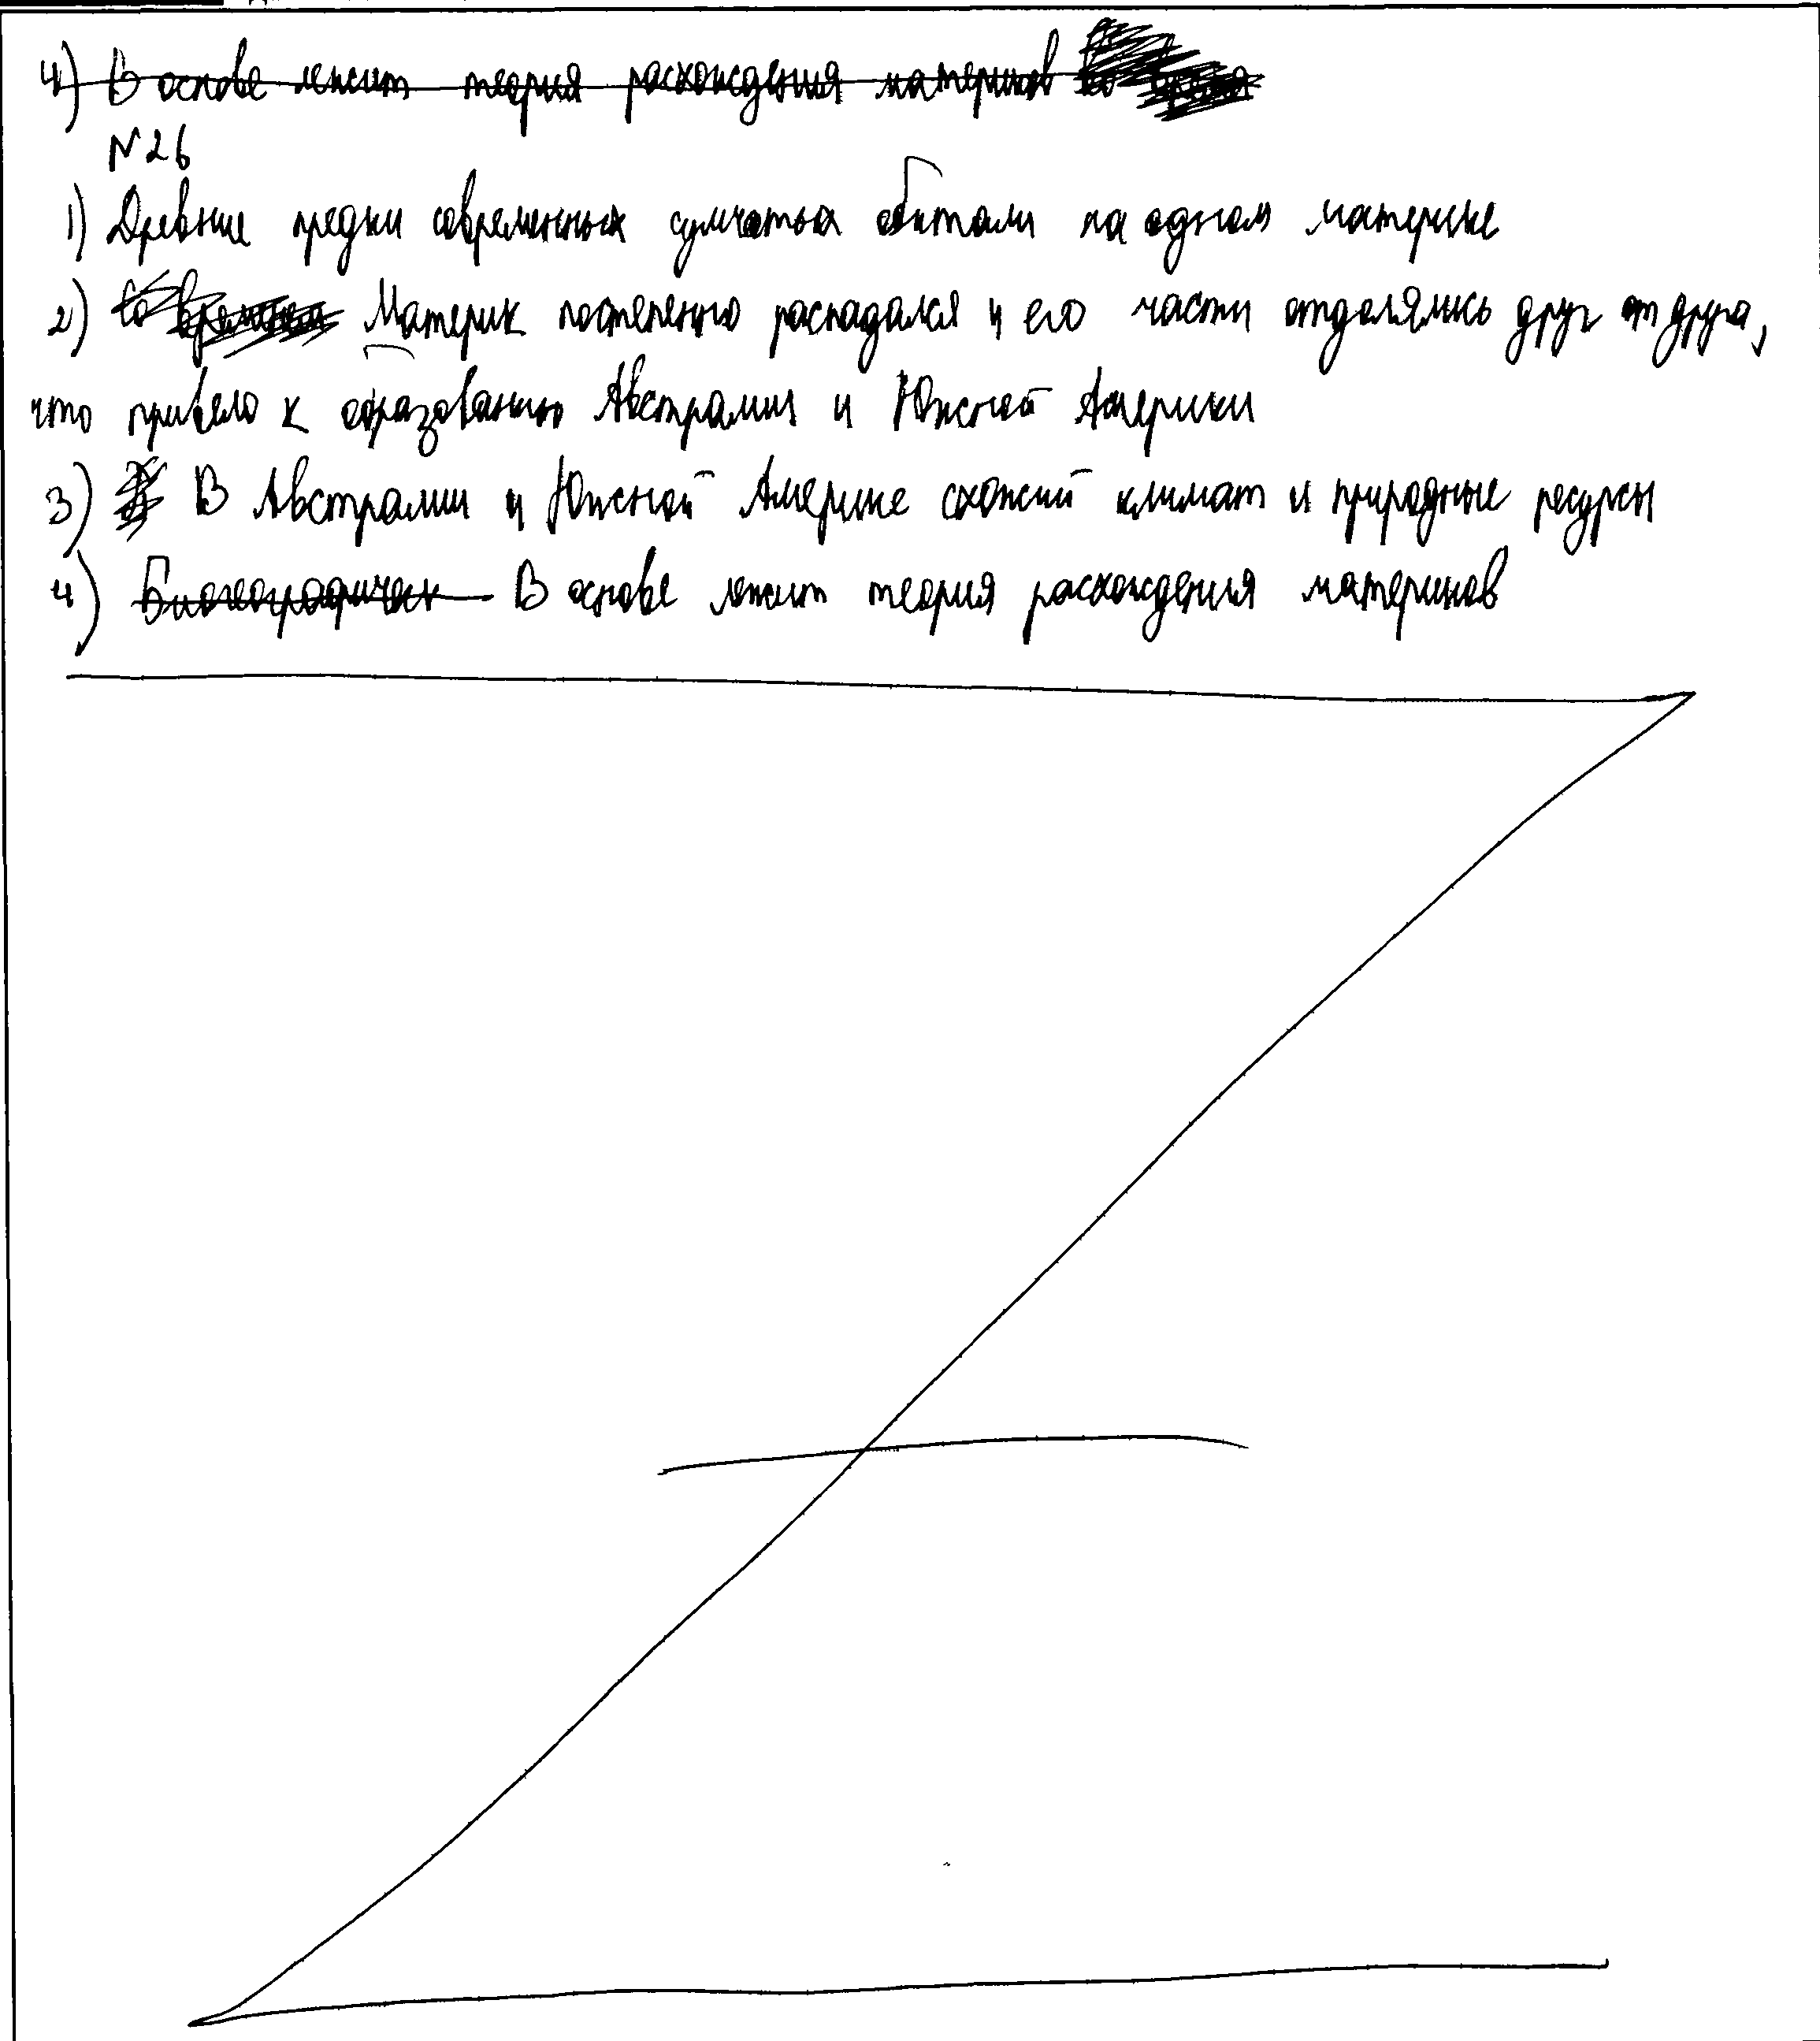 4) В основе лежит теория расхождения материков
N26
1) Древние предки современных сумчатых обитали на одном материке
2) Со временем Материк постепенно распадался и его части отдалялись друг от друга,
что привело к образованию Австралии и Южной Америки
3) В Австралии и Южной Америке схожий климат и природные ресурсы
4) Биогеографическ В основе лежит теория расхождения материков